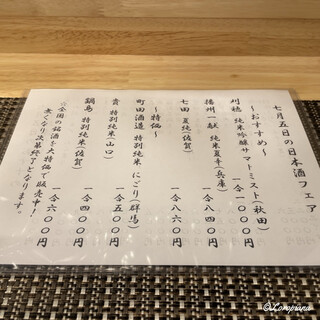 七月五日の日本酒フェア
～おすすめ～
刈穂 純米吟醸サマーミスト(秋田)
一合一〇〇〇円
播州一献 純米夏辛(兵庫)
一合八四〇円
七田 夏純(佐賀)
一合八六〇円
～特価～
町田酒造 特別純米 にごり(群馬)
一合五〇〇円
貴 特別純米(山口)
一合四〇〇円
鍋島 特別純米(佐賀)
一合六〇〇円
☆全国の銘酒を大特価で販売中!
無くなり次第終了となります。
©Loropiana